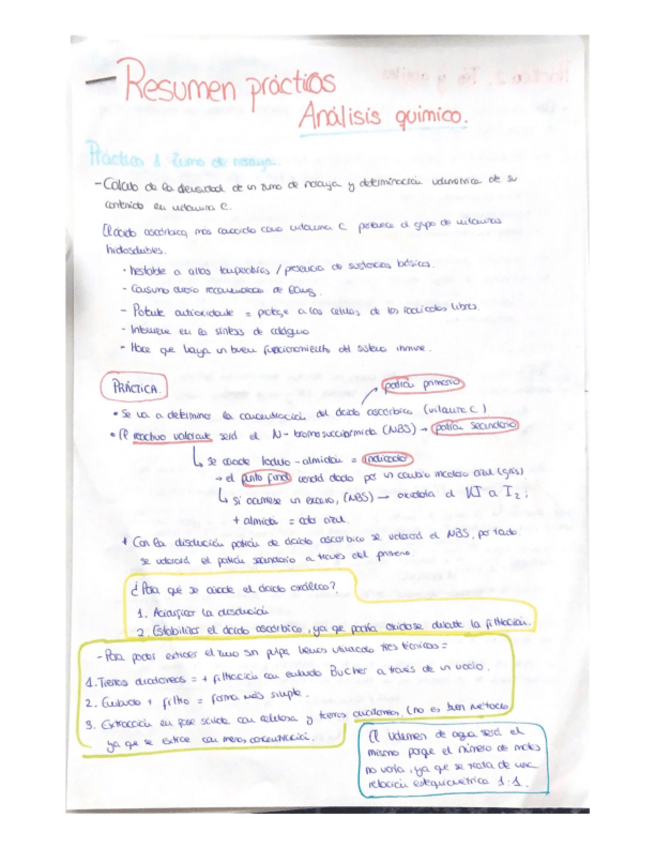 - Resumen prácticos
Análisis químico.
Práctica 1 Zumo de naranja.
- Cálculo de la densidad de un zumo de naranja y determinación volumétrica de su
contenido en vitamina C.
El ácido ascórbico, más conocido como vitamina C pertenece al grupo de vitaminas
hidrosolubles.
· Inestable a altas temperaturas / presencia de sustancias básicas.
- Consumo diario recomendado de 60mg.
- Potente antioxidante = protege a las células de los radicales libres.
- Interviene en la síntesis de colágeno
- Hace que haya un buen funcionamiento del sistema inmune.
PRÁCTICA.
patrón primario
• Se va a determinar la concentración del ácido ascórbico (vitamina C)
• El reactivo valorante será el N-bromosuccinimida (NBS) → patrón secundario
↳ se añade ioduro - almidón = indicador
→ el punto final vendrá dado por un cambio incoloro azul (gris)
↳ si ocurriese un exceso, (NBS) → oxidaría el KI a I2;
+ almidón = color azul.
Con la disolución patrón de ácido ascórbico se valorará el NBS, por tanto
se valorará el patrón secundario a través del primario.
¿Para qué se añade el ácido oxálico?
1. Acidificar la disolución
2. Estabilizar el ácido ascórbico, ya que podría oxidarse durante la filtración.
- Para poder extraer el zumo sin pulpa hemos utilizado tres técnicas =
1. Tierras diatomeas = + filtración con embudo Bucher a través de un vacío.
2. Embudo + filtro = forma más simple.
3. Extracción en fase sólida con celulosa y tierras (no es buen método
ya que se extrae con menos concentración.
El volumen de agua será el
mismo porque el número de moles
no varía, ya que se trata de una
relación estequiométrica 1:1.